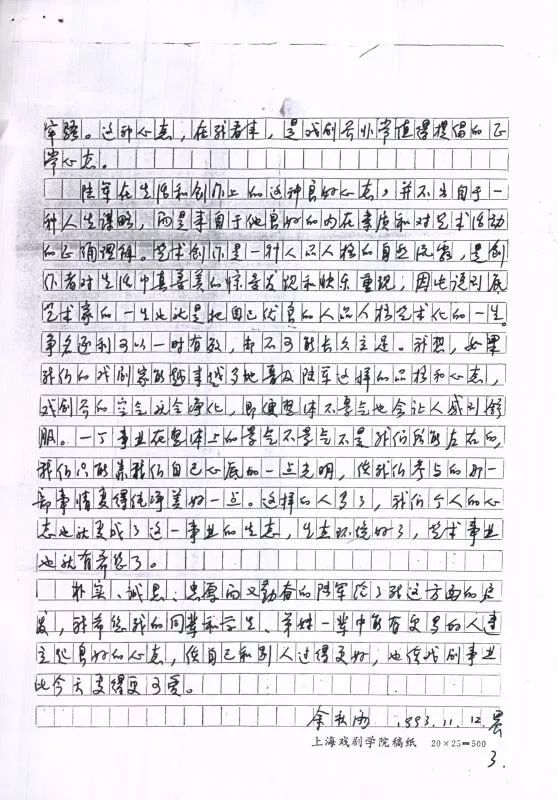 牢骚。这种心态，在我看来，是戏剧界非常值得提倡的正
常心态。
陆军在生活和创作上的这种良好心态，并不出自于一
种人生谋略，而是来自于他良好的内在素质和对艺术活动
的正确理解。艺术创作是一种人品人格的自然流露，是创
作者对生活中真善美的惊喜发现和快乐重现，因此说到底
艺术家的一生也就是把自己优良的人品人格艺术化的一生。
争名逐利可以一时有效，却不可能长久立足。我想，如果
我们的戏剧家能越来越多地喜及陆军这样的品格和心态，
戏剧界的空气就会净化，即便整体不景气也会让人感到舒
服。一个事业在整体上的景气不景气不是我们所能左右的，
我们只能靠我们自己心底的一点光明，使我们参与的那一
部事情变得纯净美好一点。这样的人多了，我们个人的心
态也就变成了这一事业的生态，生态环境好了，艺术事业
也就有希望了。
朴实、诚恳、忠厚而又勤奋的陆军给了我这方面的启
发，我希望我的同辈和学生、弟妹一辈中能有更多的人建
立起良好的心态，使自己和别人过得更好，也使戏剧事业
比今天变得更可爱。
余秋雨 1993.11.12.晨
上海戏剧学院稿纸 20×25=500
3.